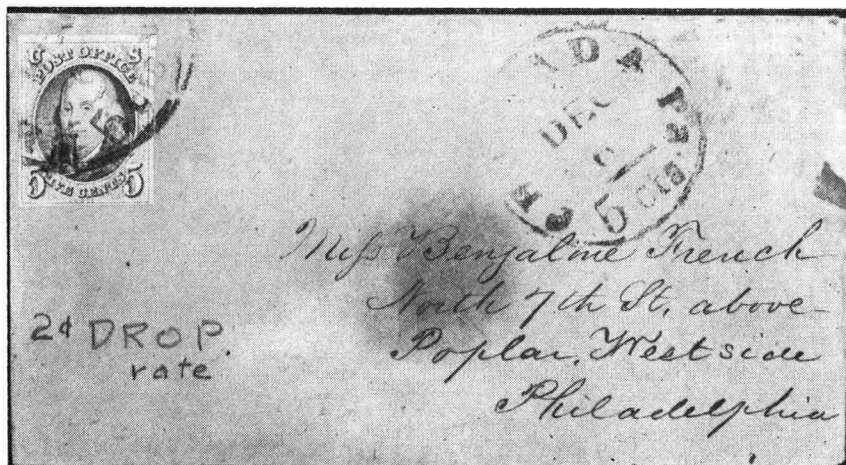 U S
POST OFFICE
5 FIVE CENTS 5
DEC
6
5 cts
Miss Benjaline French
North 7th St, above
Poplar, West side
Philadelphia
2¢ DROP.
rate